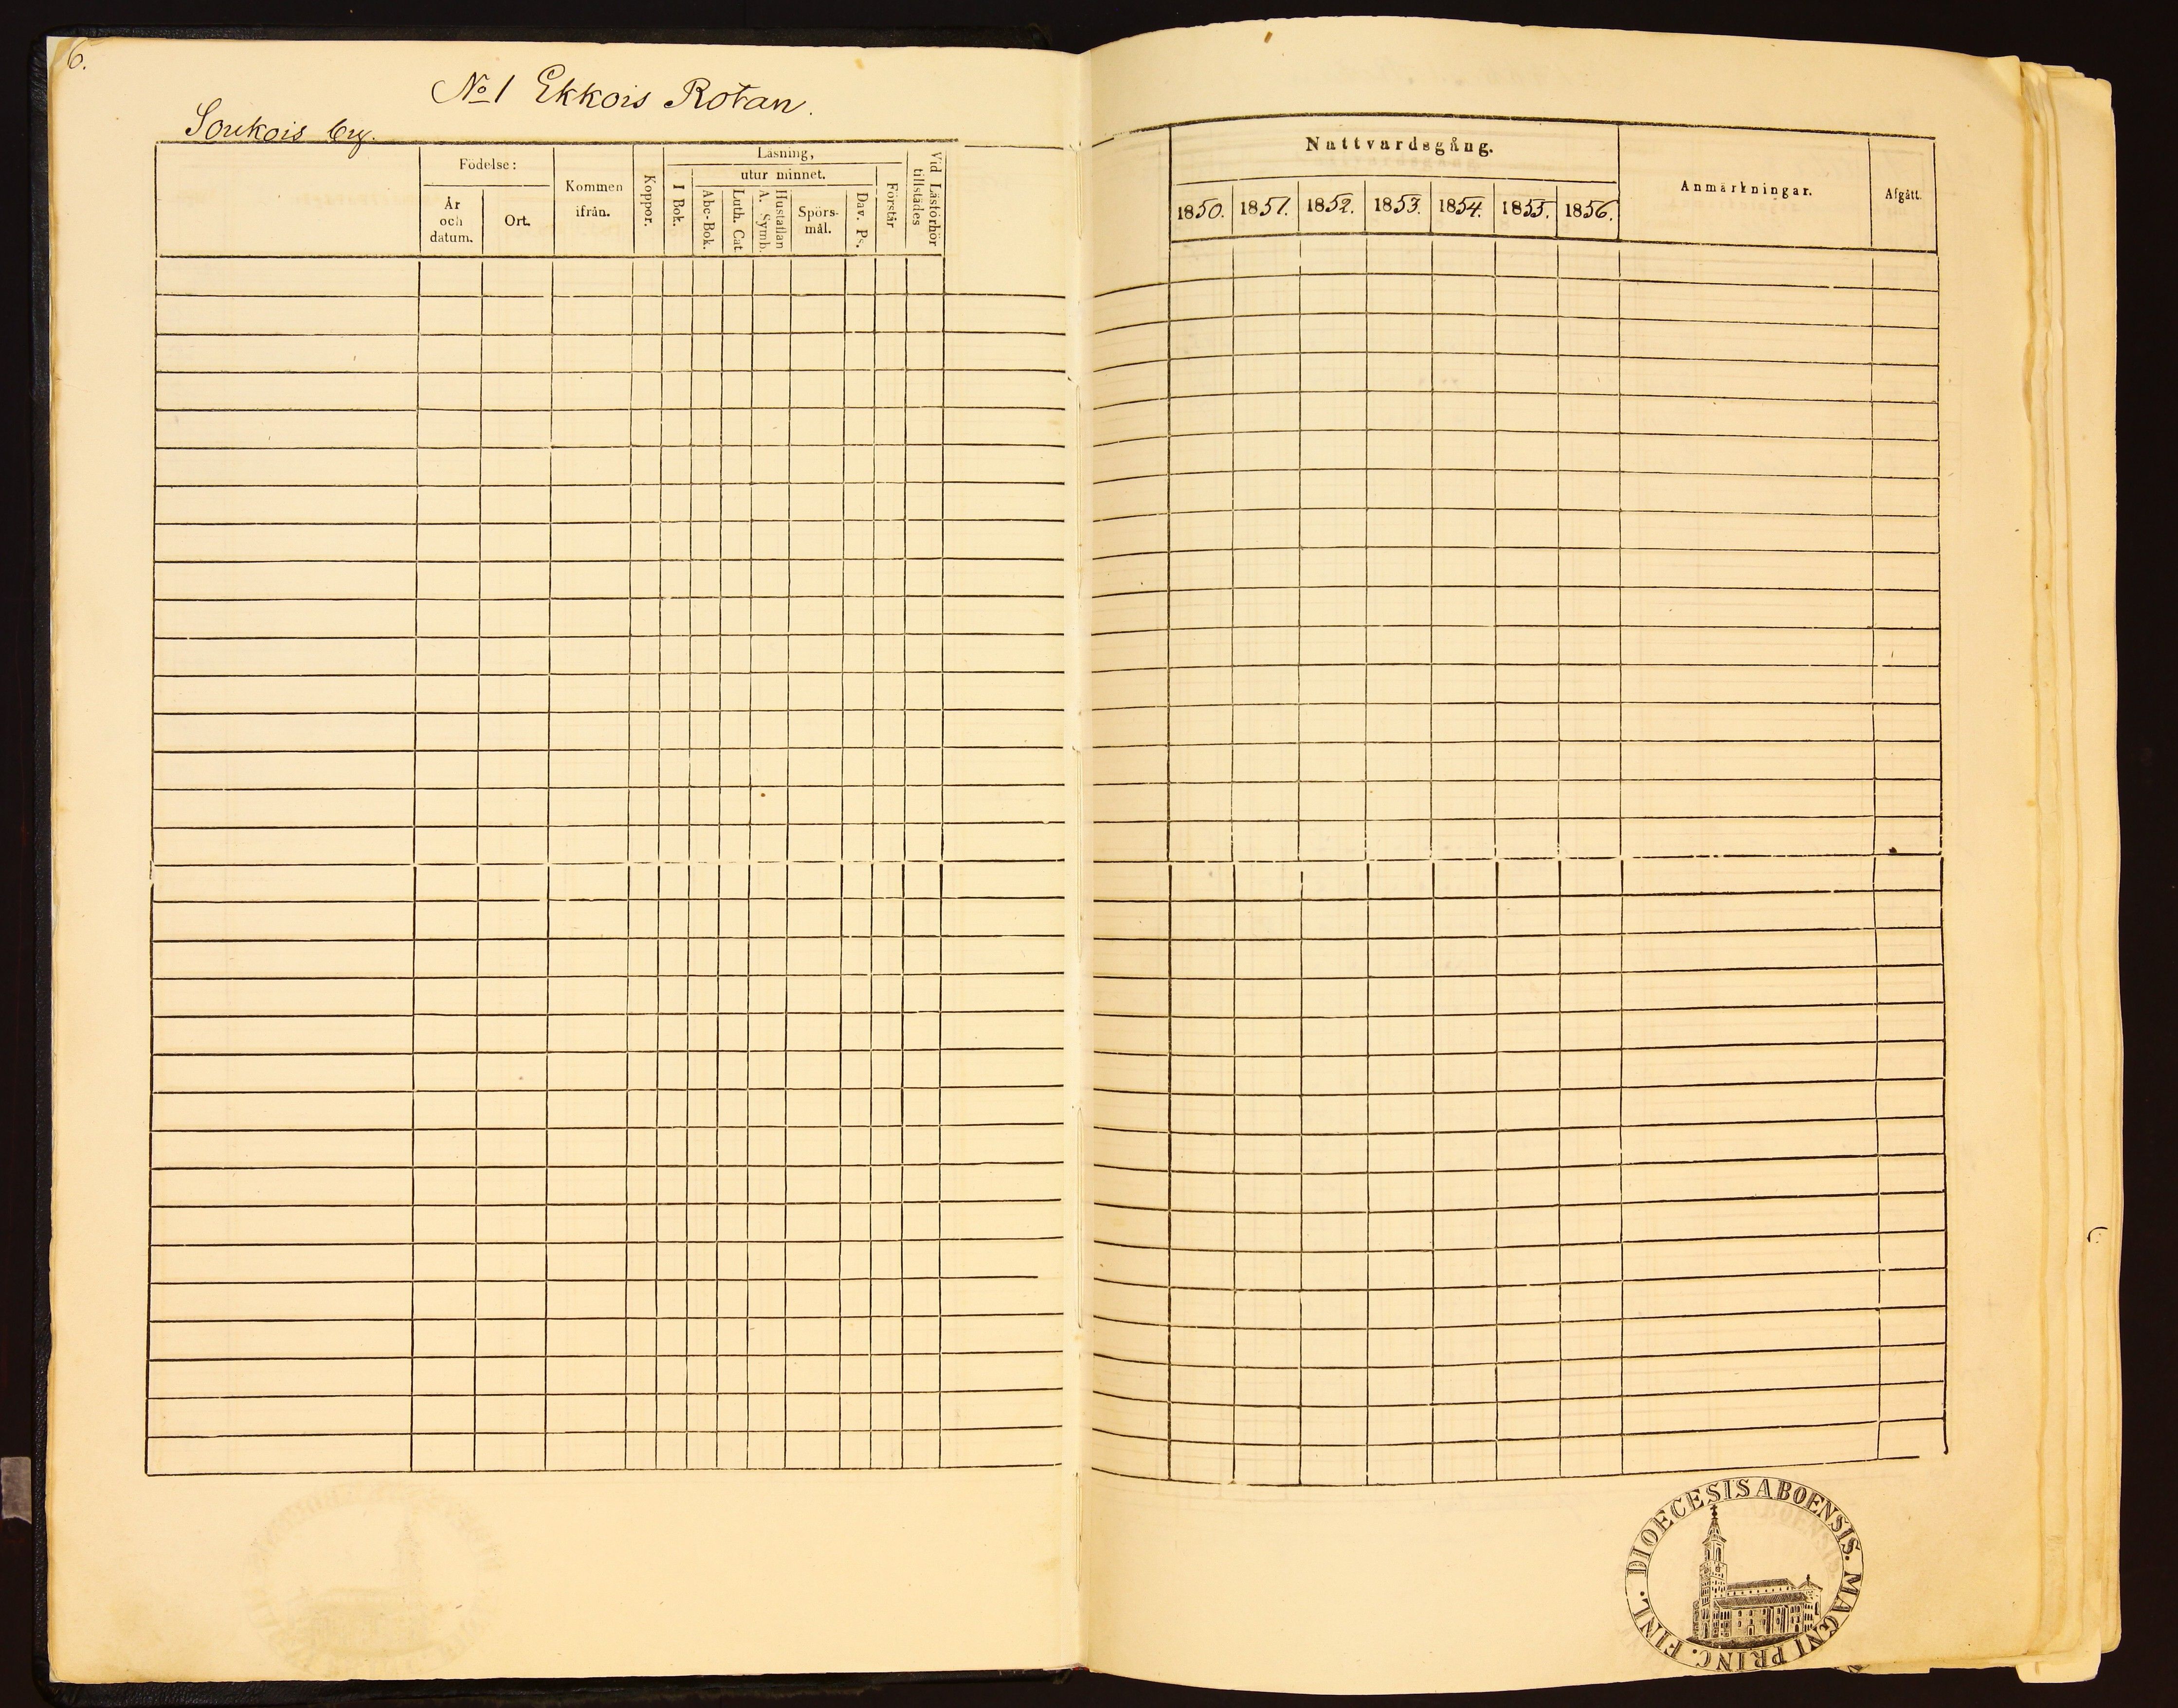 6.
No 1 Ekkois Rotan.
Soukois by.
Födelse:
År och datum.
Ort.
Kommen ifrån.
Koppor.
Läsning,
I Bok.
utur minnet.
Abc-Bok.
Luth. Cat
Hustaflan A. Symb.
Spörs-mål.
Dav. Ps.
Förstår
Vid Läsförhör tillstädes
Nattvardsgång.
1850. 1851. 1852. 1853. 1854. 1855. 1856.
Anmärkningar.
Afgått.
DIOECESIS ABOENSIS. MAGNI PRINC. FINL.